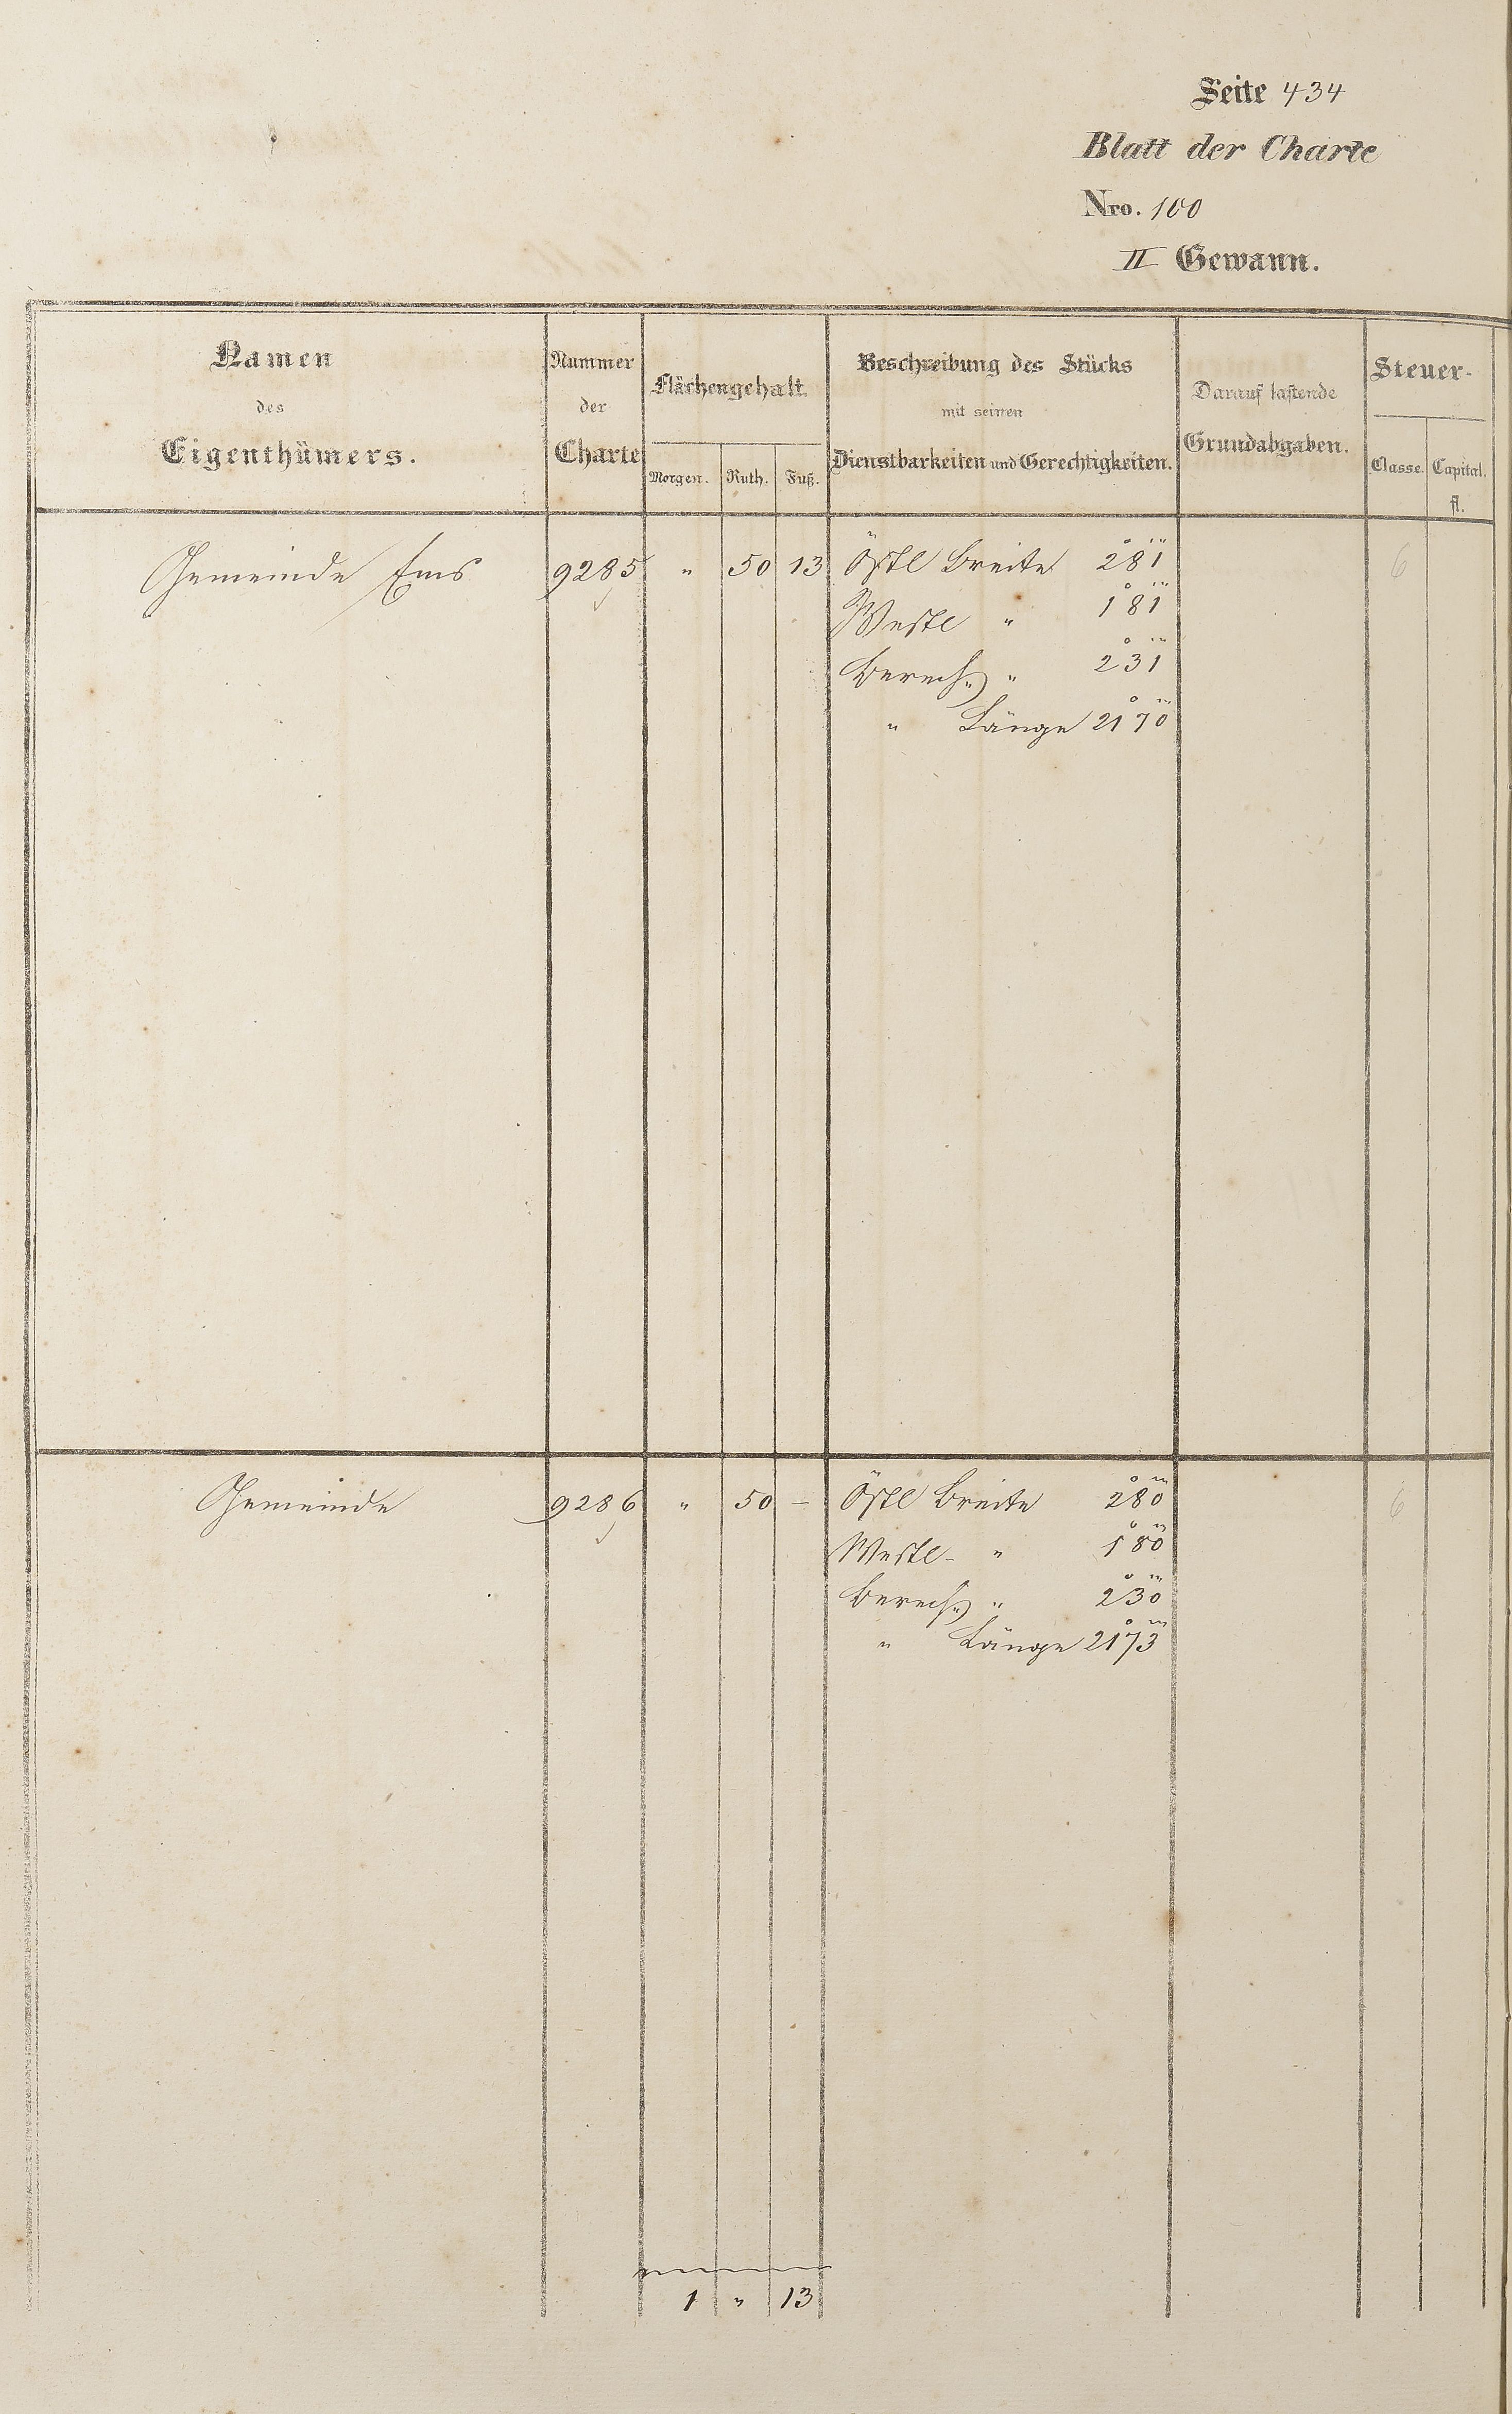 Seite 434
Blatt der Charte
Nro. 100
II Gewann.
Namen
des
Eigenthümers.
Nummer
der
Charte
Flächengehalt.
Morgen. Ruth. Fuß.
Beschreibung des Stücks
mit seinen
Dienstbarkeiten und Gerechtigkeiten.
Darauf lastende
Grundabgaben.
Steuer-
Classe. Capital.
fl.
Gemeinde Ems 9285 " 50 13 Östl Breite 2° 81''' 6
Westl " 1° 81'''
Berech. " 2° 31'''
" Länge 21° 70'''
Gemeinde 9286 " 50 – Östl Breite 2° 80''' 6
Westl " 1° 80'''
Berech. " 2° 30'''
" Länge 21° 73'''
1 " 13